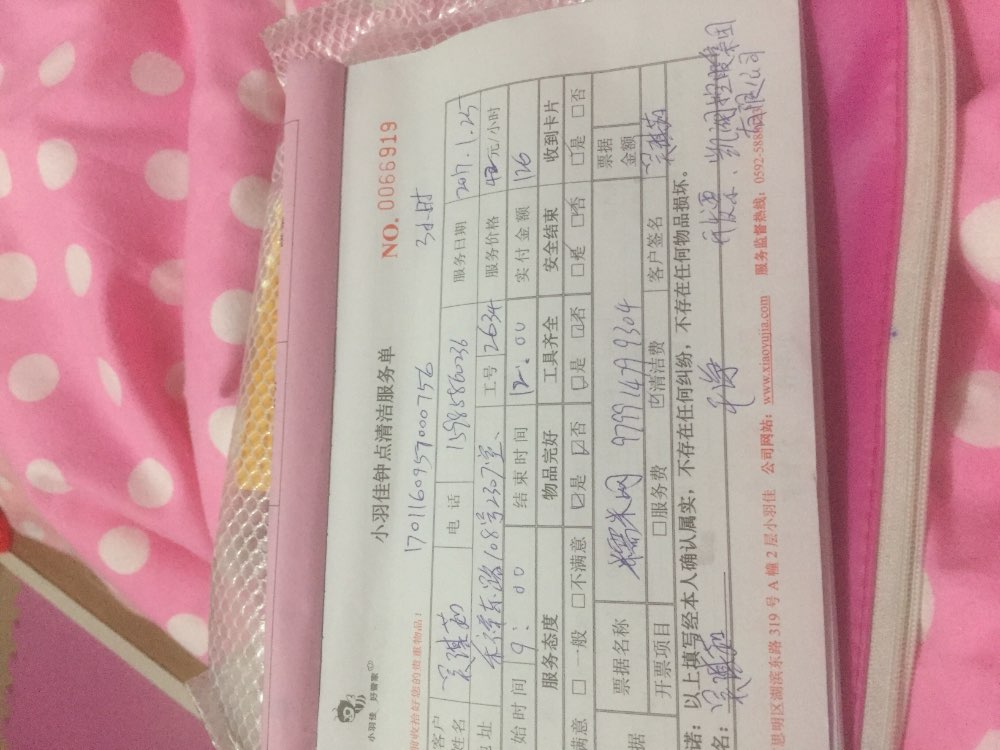 小羽佳 好管家
小羽佳钟点清洁服务单
NO. 0066919
收拾好您的贵重物品:
17011609597000756
3小时
客户
姓名
电话 15985860236
服务日期 2017.1.25
址 东路108号2307室
工号 2634
服务价格 42元/小时
始时间 9:00
结束时间 12:00
实付金额 126
服务态度 物品完好 工具齐全 安全结束 收到卡片
满意 □一般 □不满意 ☑是 □否 □是 □否 □是 □否 □是 □否
据
票据名称 糯米网 9799 1479 9304
票据
金额
开票项目 □服务费 ☑清洁费
客户签名
诺:以上填写经本人确认属实,不存在任何纠纷,不存在任何物品损坏。
名:
开发票:凯润控股集团
有限公司
思明区湖滨东路 319 号 A 幢 2 层小羽佳 公司网站:www.xiaoyujia.com 服务监督热线:0592-5888